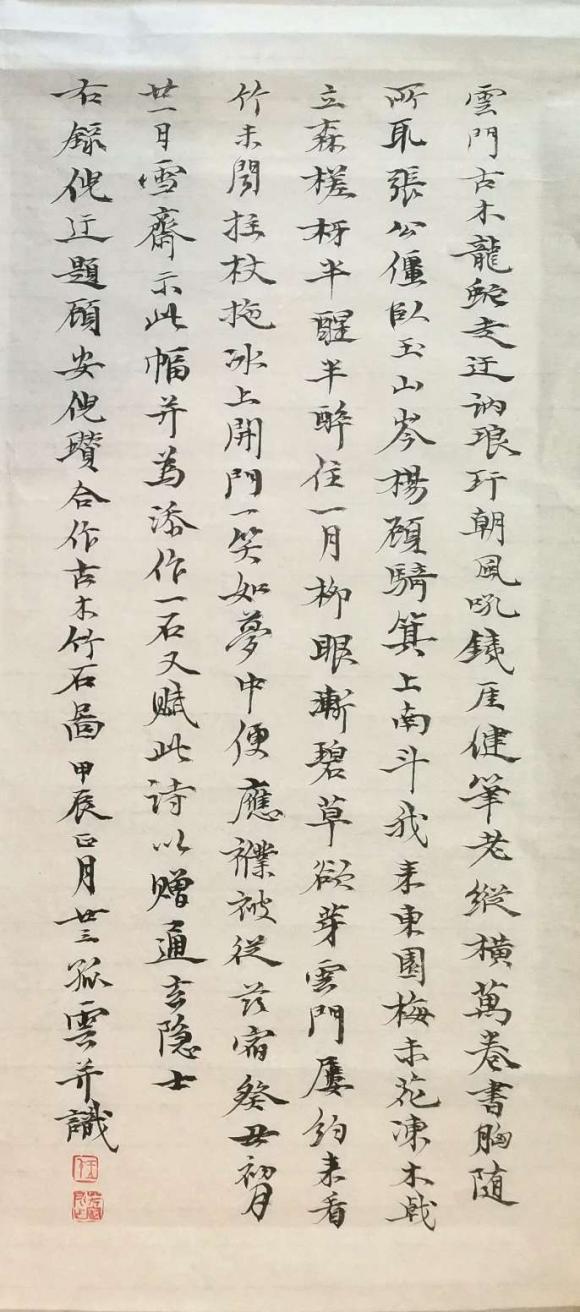 雲門古木龍蛇走迂訥琅玕朝風吼鐵厓健筆老縱橫萬卷書胸隨
所取張公僵臥玉山岑楊顧騎箕上南斗我来東園梅未花凍木戟
立森槎枒半醒半醉住一月柳眼漸碧草欲芽雲門屢約来看
竹未聞拄杖拖冰上開門一笑如夢中便應襆被從茲宿癸丑初月
廿一日雪齋示此幅并為添作一石又賦此詩以贈通玄隐士
右録倪迂題顧安倪瓚合作古木竹石啚甲辰正月廿三孤雲并識